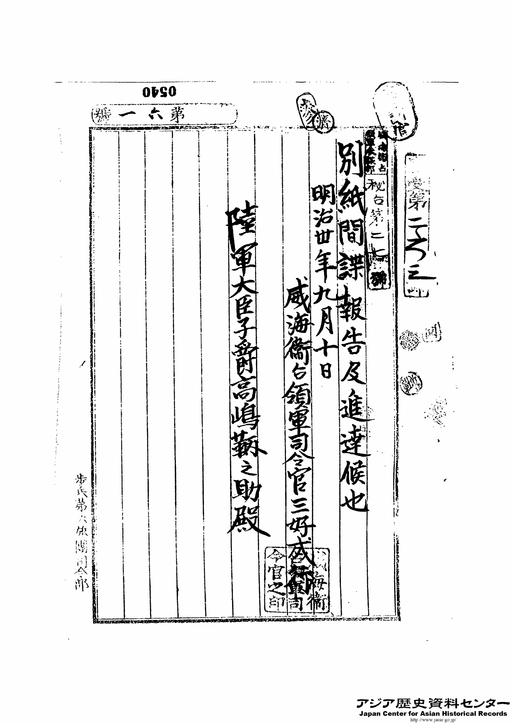 0540
第六一號
受第二六三
秘台第二七號
別紙間諜報告及進達候也
明治卅年九月十日
威海衛占領軍司令官三好成行
威海衛占領軍司令官之印
陸軍大臣子爵高嶋鞆之助殿
アジア歴史資料センター
Japan Center for Asian Historical Records
http://www.jacar.go.jp/